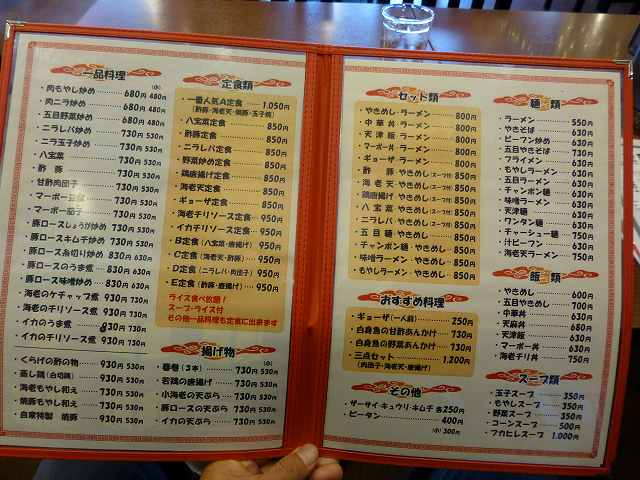 一品料理
(小)
・肉もやし炒め 680円 480円
・肉ニラ炒め 680円 480円
・五目野菜炒め 680円 480円
・ニラレバ炒め 730円 530円
・ニラ玉子炒め 730円 530円
・八宝菜 730円 530円
・酢豚 730円 530円
・甘酢肉団子 730円 530円
・マーボー豆腐 730円 530円
・マーボー茄子 730円 530円
・豚ロースしょうが炒め 730円 530円
・豚ロースキムチ炒め 730円 530円
・豚ロース糸切り炒め 830円 630円
・豚ロースのうま煮 830円 630円
・豚ロース味噌炒め 830円 630円
・海老のケチャップ煮 930円 730円
・海老のチリソース煮 930円 730円
・イカのうま煮 830円 730円
・イカのチリソース煮 930円 730円
・くらげの酢の物 930円 530円
・蒸し鶏(白切鶏) 930円 530円
・海老もやし和え 930円 530円
・焼豚もやし和え 930円 530円
・自家特製 焼豚 930円 530円
定食類
・一番人気A定食 1,050円
(酢豚・海老天・焼豚・玉子焼)
・八宝菜定食 850円
・酢豚定食 850円
・ニラレバ定食 850円
・野菜炒め定食 850円
・鶏唐揚げ定食 850円
・海老天定食 850円
・ギョーザ定食 850円
・海老チリソース定食 950円
・イカチリソース定食 950円
・B定食(八宝菜・唐揚げ) 950円
・C定食(海老天・酢豚) 950円
・D定食(ニラレバ・肉団子) 950円
・E定食(酢豚・唐揚げ) 950円
ライス食べ放題!
スープ・ライス付
その他一品料理も定食に出来ます
揚げ物
(小)
・春巻(3本) 730円 530円
・若鶏の唐揚げ 730円 530円
・小海老の天ぷら 730円 530円
・豚ロースの天ぷら 730円 530円
・イカの天ぷら 730円 530円
セット類
・やきめし・ラーメン 800円
・中華丼・ラーメン 800円
・天津飯・ラーメン 800円
・マーボー丼・ラーメン 800円
・ギョーザ・ラーメン 800円
・酢豚・やきめし(スープ付) 850円
・海老天・やきめし(スープ付) 850円
・鶏唐揚・やきめし(スープ付) 850円
・八宝菜・やきめし(スープ付) 850円
・ニラレバ・やきめし(スープ付) 850円
・五目麺・やきめし 850円
・チャンポン麺・やきめし 850円
・味噌ラーメン・やきめし 850円
・もやしラーメン・やきめし 850円
おすすめ料理
・ギョーザ(一人前) 250円
・白身魚の甘酢あんかけ 730円
・白身魚の野菜あんかけ 730円
・三点セット 1,200円
(肉団子・海老天・唐揚げ)
その他
・ザーサイ・キュウリ・キムチ 各250円
・ピータン 400円
(小) 300円
麺類
・ラーメン 550円
・やきそば 630円
・ビーフン炒め 630円
・五目やきそば 730円
・フライメン 630円
・もやしラーメン 630円
・五目ラーメン 630円
・チャンポン麺 630円
・味噌ラーメン 630円
・天津麺 630円
・ワンタン麺 630円
・チャーシュー麺 750円
・汁ビーフン 630円
・海老天ラーメン 750円
飯類
・やきめし 600円
・五目やきめし 700円
・中華丼 630円
・天麻丼 680円
・天津飯 630円
・マーボー丼 630円
・海老チリ丼 750円
スープ類
・玉子スープ 350円
・もやしスープ 350円
・野菜スープ 350円
・コーンスープ 500円
・フカヒレスープ 1,000円